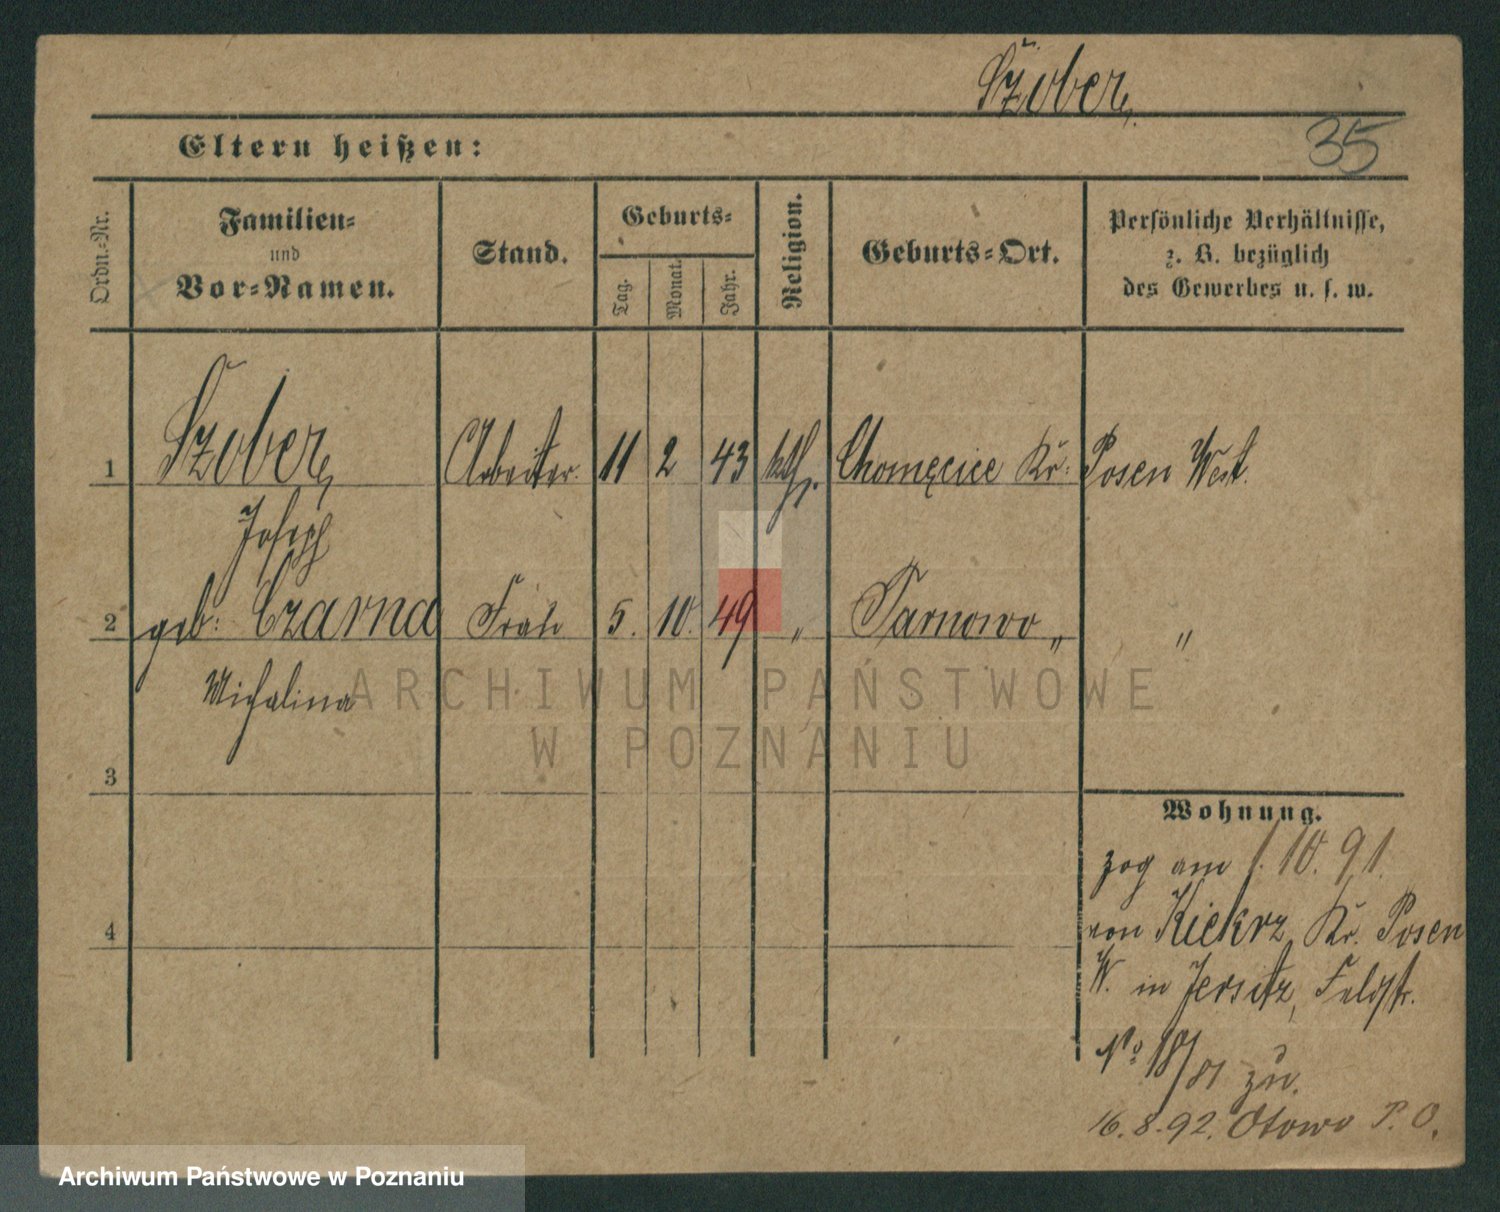 Szober,
35
Eltern heißen:
Ordn.-Nr.
Familien-
und
Vor-Namen.
Stand.
Geburts-
Tag.
Monat.
Jahr.
Religion.
Geburts-Ort.
Persönliche Verhältnisse,
z. B. bezüglich
des Gewerbes u. s. w.
1 Szober, Arbeiter. 11 2 43 kth. Chomęcice Kr. Posen West.
Joseph
2 geb: Czarna Frau 5. 10. 49 " Tarnowo " "
Michalina
3
4
Wohnung.
zog am 1. 10. 91.
von Kiekrz, Kr. Posen
W. in Jersitz, Feldstr.
No 18/81 zu.
16. 8. 92. Otowo P. O.
ARCHIWUM PAŃSTWOWE
W POZNANIU
Archiwum Państwowe w Poznaniu